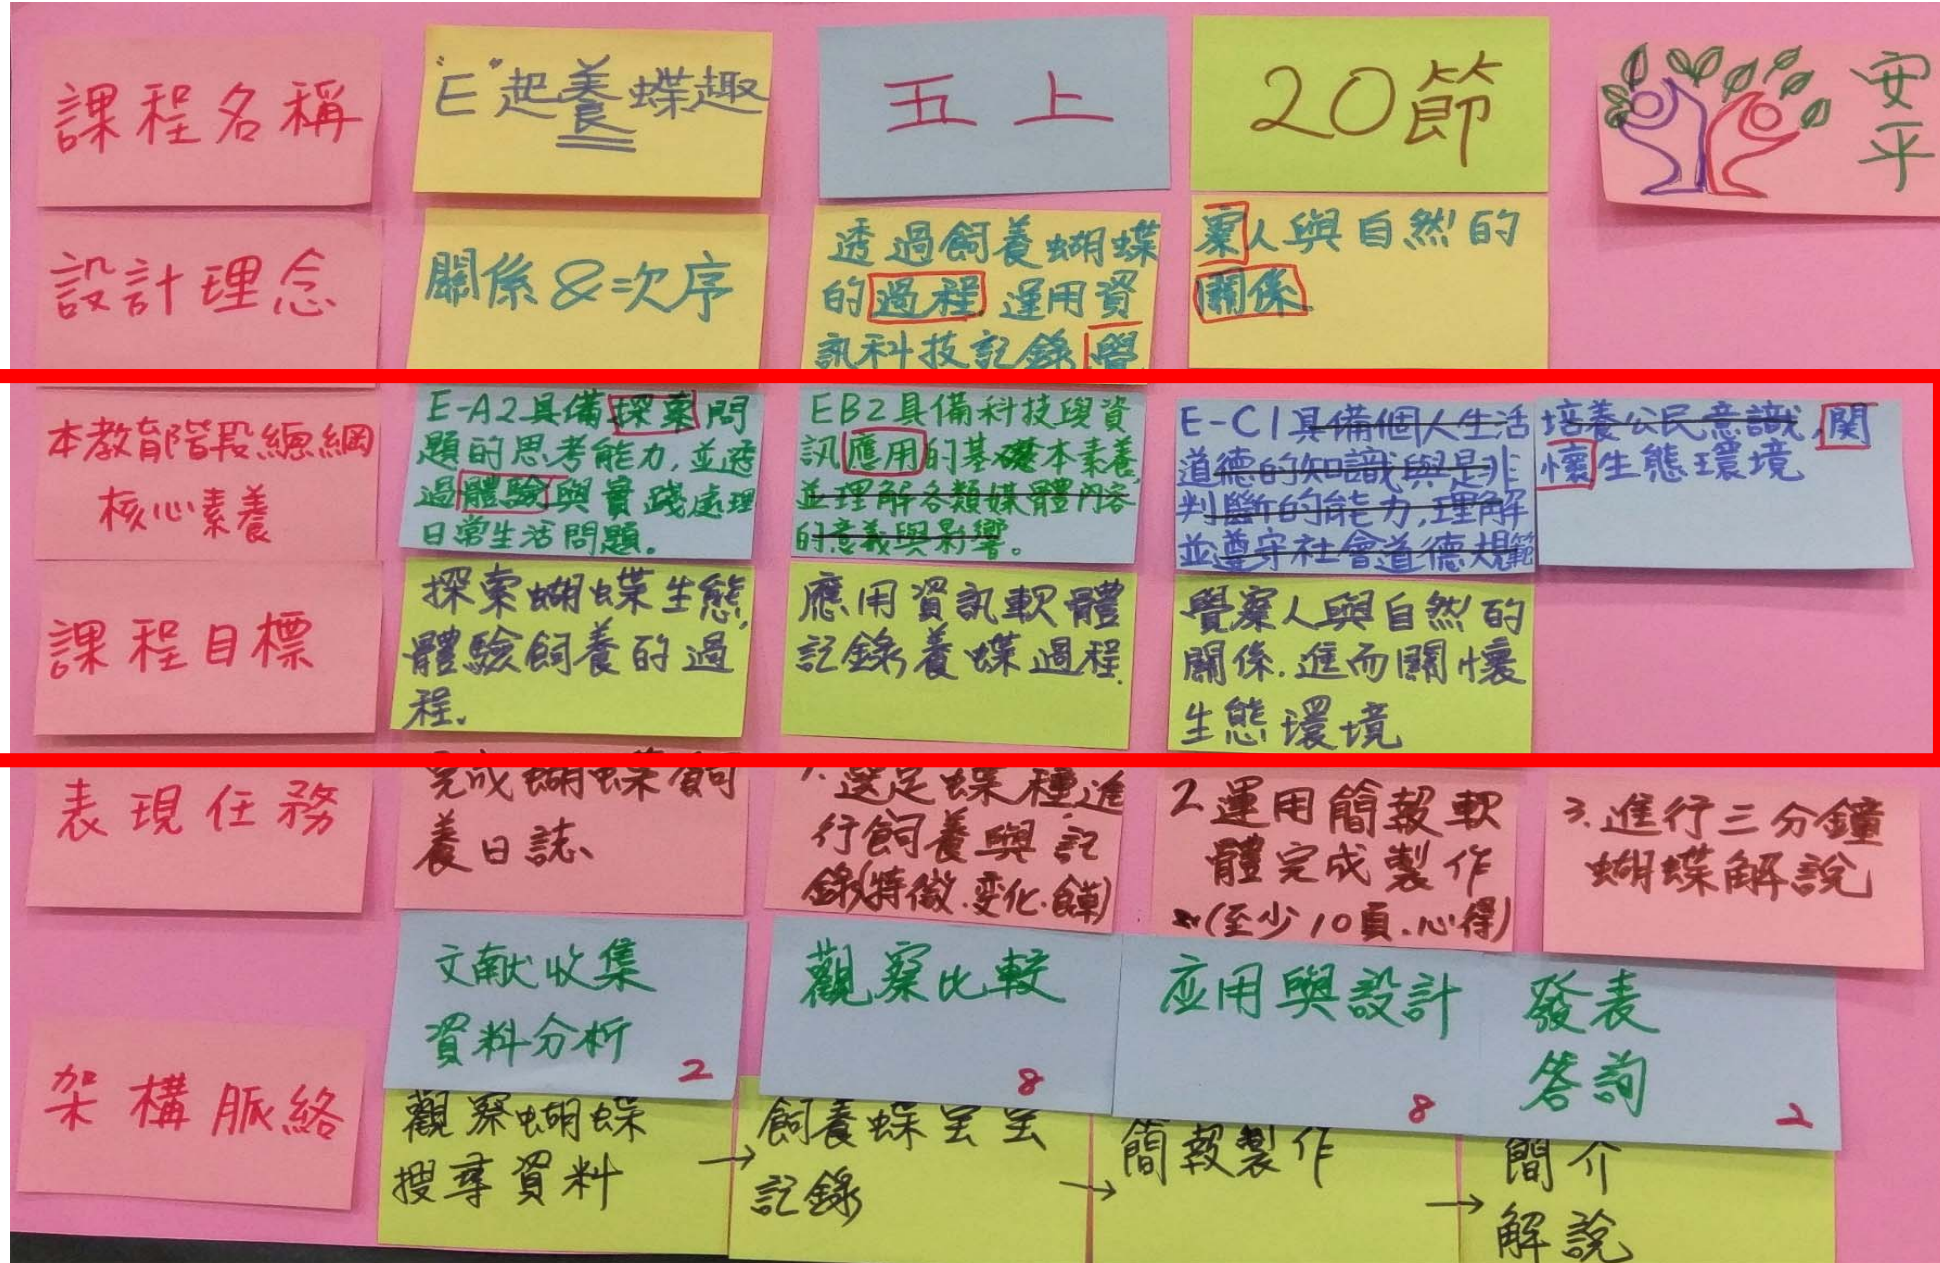 課程名稱
"E"起養蝶趣
五上
20節
安平
設計理念
關係&次序
透過飼養蝴蝶
的過程 運用資
訊科技記錄 覺
察人與自然的
關係.
本教育階段總綱
核心素養
E-A2具備探索問
題的思考能力,並透
過體驗與實踐處理
日常生活問題。
EB2具備科技與資
訊應用的基礎本素養,
並理解各類媒體內容
的意義與影響。
E-C1具備個人生活
道德的知識與是非
判斷的能力,理解
並遵守社會道德規範
培養公民意識,関
懷生態環境
課程目標
探索蝴蝶生態,
體驗飼養的過
程.
應用資訊軟體
記錄養蝶過程.
覺察人與自然的
關係.進而關懷
生態環境
表現任務
完成蝴蝶飼
養日誌、
1.選定蝶種進
行飼養與記
錄(特徵.变化.食草)
2.運用簡報軟
體完成製作
(至少10頁.心得)
3.進行三分鐘
蝴蝶解說
架構脈絡
文献收集
資料分析
2
觀察比較
8
应用與設計
8
發表
答詢
2
觀察蝴蝶
搜尋資料
→
飼養蝶宝宝
記錄
→
簡報製作
→
簡介
解說